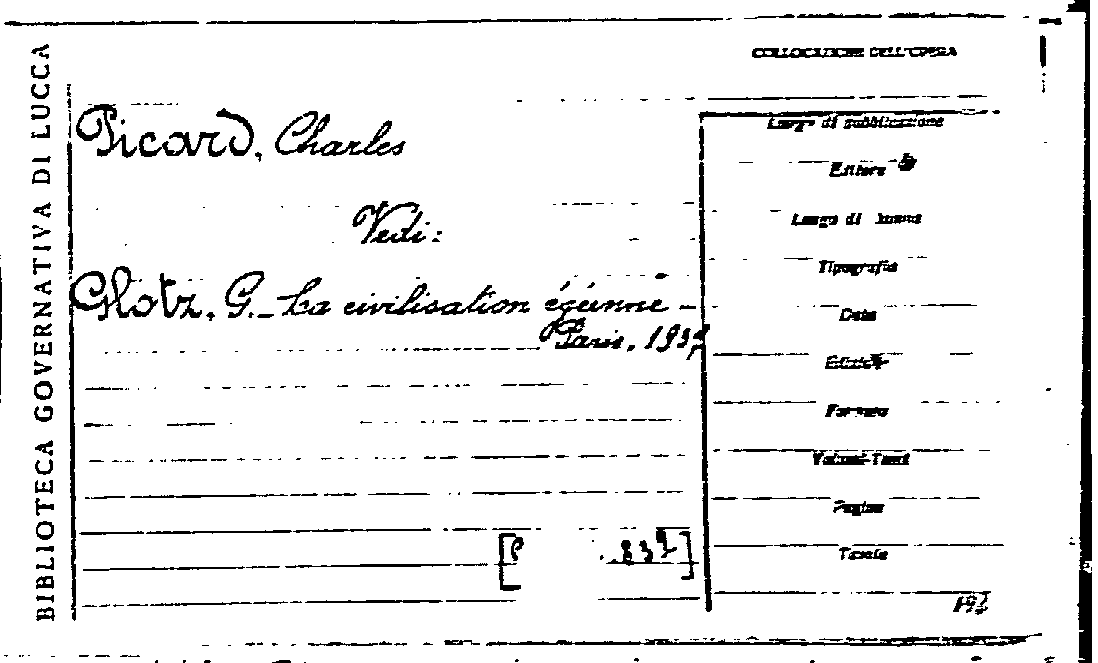 BIBLIOTECA GOVERNATIVA DI LUCCA
COLLOCAZIONE DELL'OPERA
Picard, Charles
Vedi:
Glotz, G. - La civilisation égéenne -
Paris, 193
Luogo di pubblicazione
Editore
Luogo di stampa
Tipografia
Data
Edizione
Formato
Volumi-Tomi
Pagine
Tavole